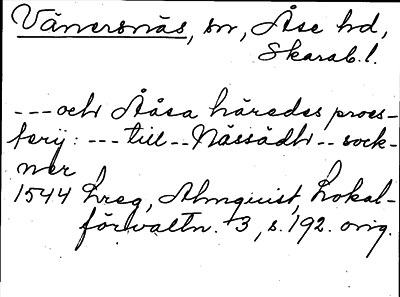 Vänersnäs, sn, Åse hd,
Skarab.l.
---och Ååsa häredes proes-
ferij: --- till -- Nässädh -- sock-
ner
1544 Lreg, Almquist, Lokal-
förvaltn. +3, s. 192. orig.